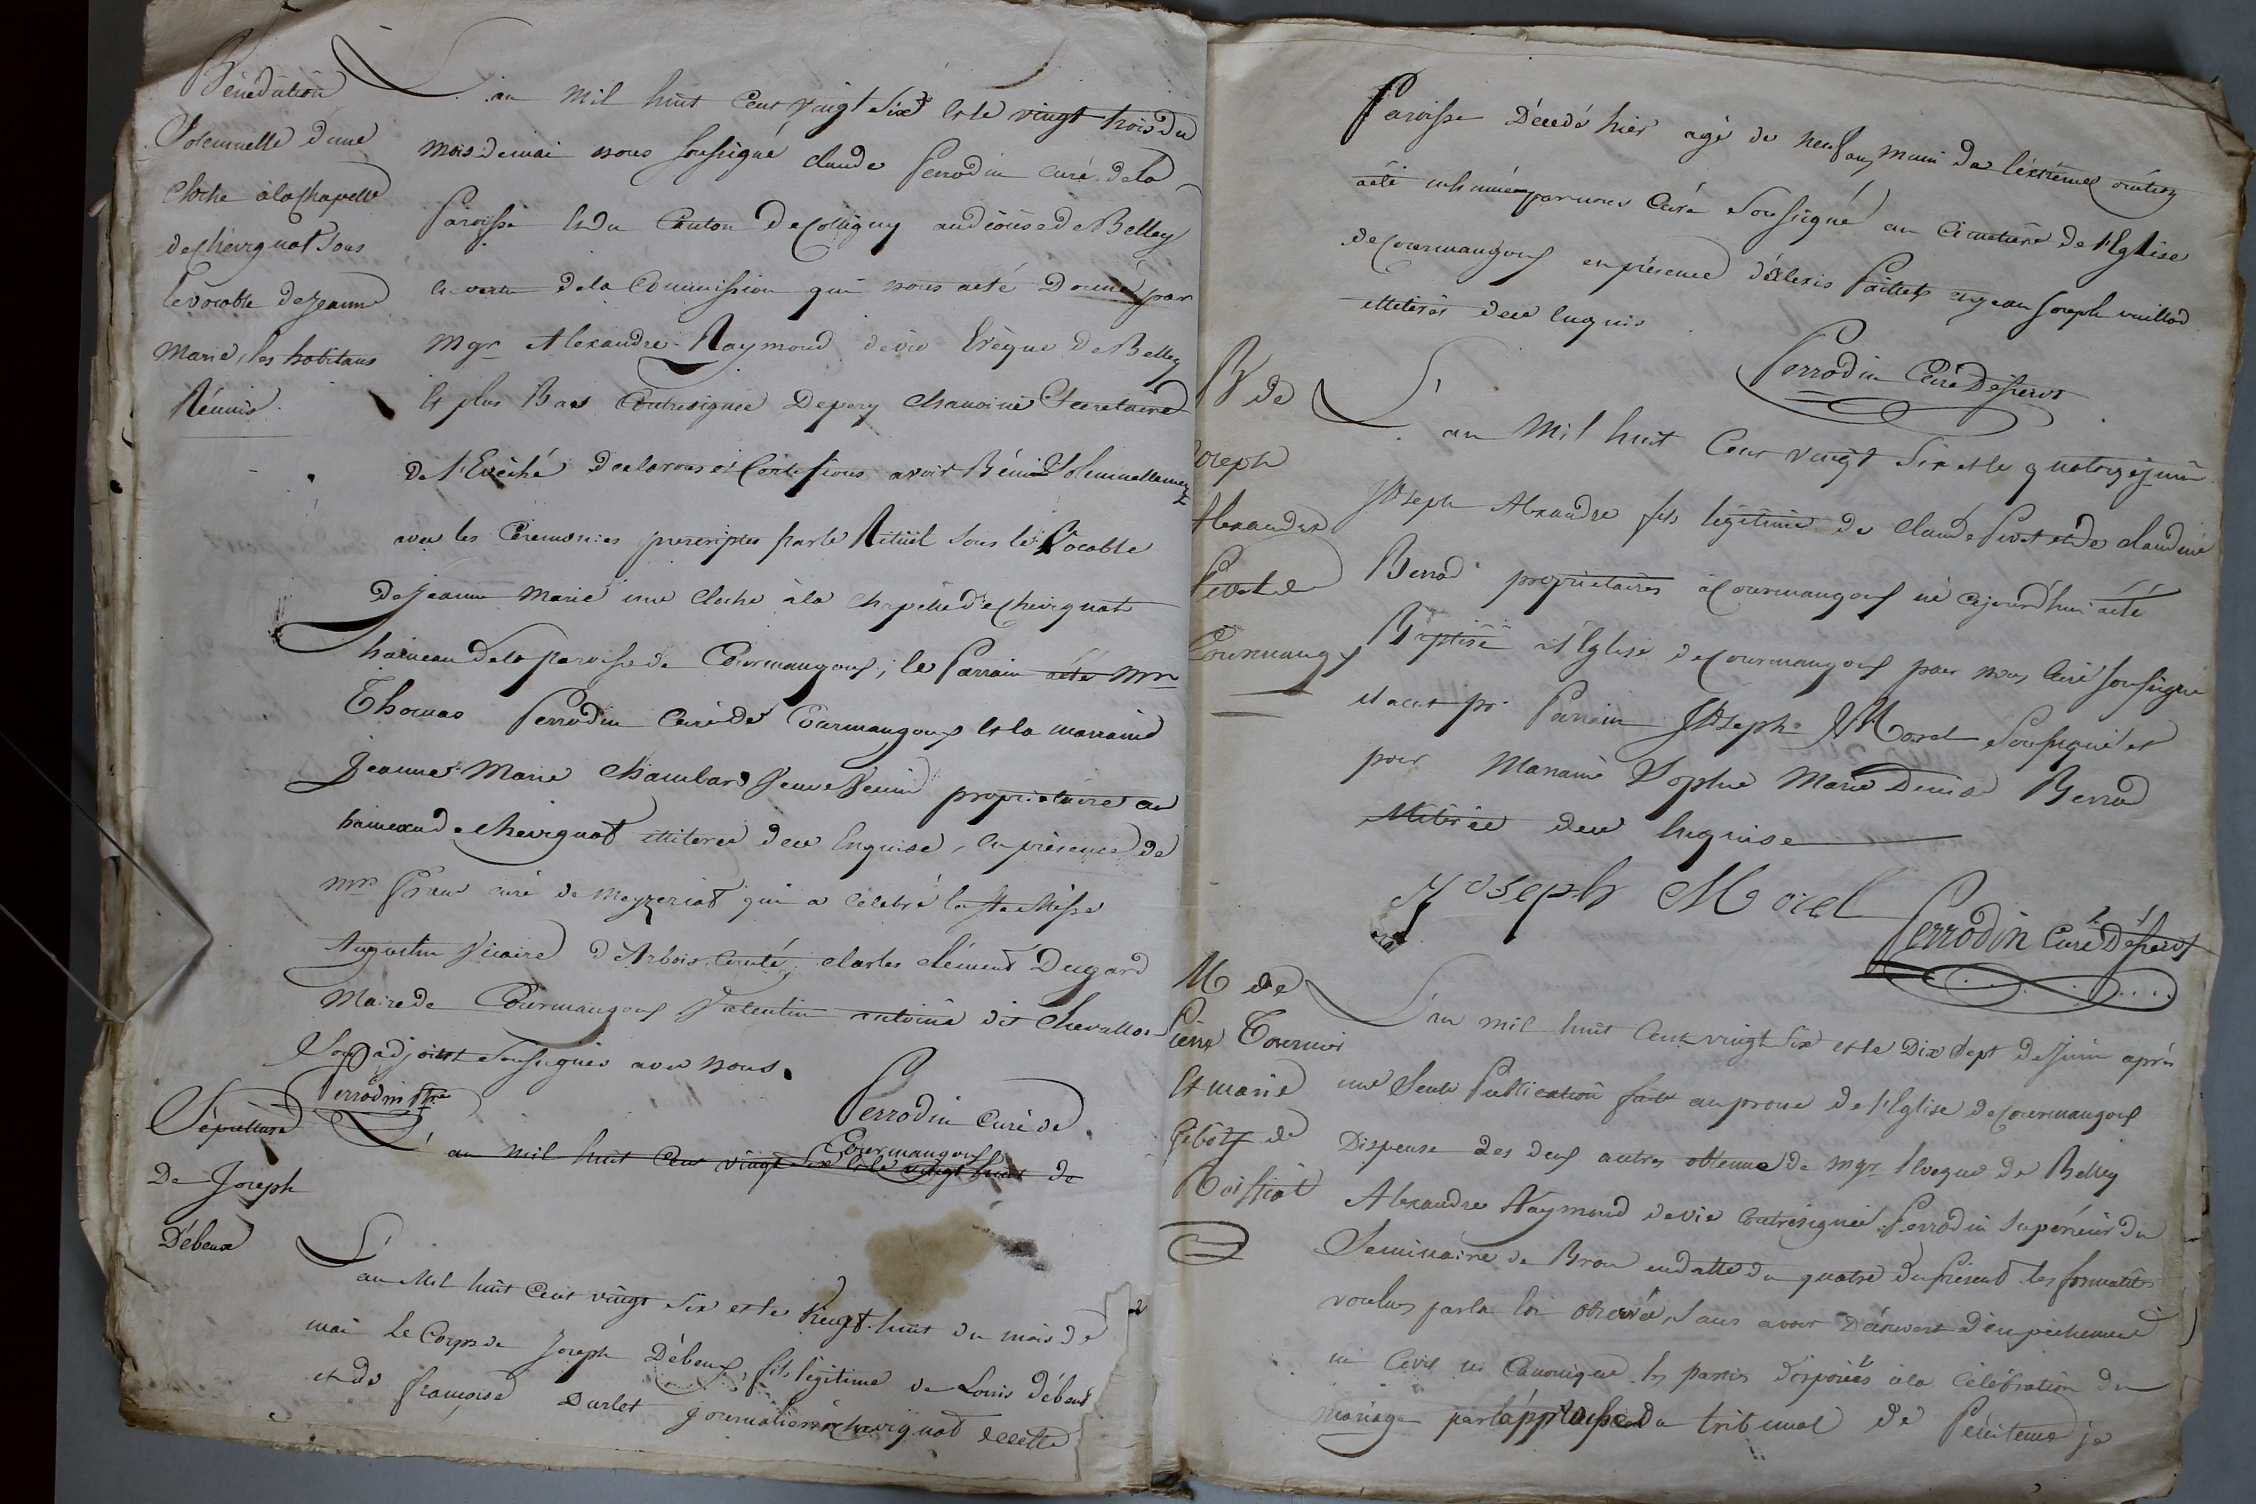 Bénédiction
Solemnelle d'une
cloche à la chapelle
de chevignat sous
le vocable de Jeanne
Marie, les habitans
Réunis
L'an mil huit cent vingt six et le vingt trois du
mois de mai nous soussigné claude Perrodin curé de la
Paroisse et du Canton de coligny au diocèse de Belley
en vertu de la commission qui nous a été donné par
Mgr Alexandre Raymond devie Evêque de Belley
et plus Bas Contresignée Depery chanoine Secretaire
de l'Evêché declarons et Confessons avoir Béni Solemnellement
avec les Cérémonies prescriptes par le Rituel sous le Vocable
de Jeanne Marie une cloche à la chapelle de chevignat
hameau de la paroisse de Courmangoux, le Parrain a été Mr
Thomas Perrodin Curé de Courmangoux et la marraine
Jeanne Marie Chambard veuve propriétaire au
hameau de chevignat illiterée de ce Enquise, en présence de
Mr curé de Meyzeriat qui a célébré la Ste Messe
Augustin Vicaire d'Arbois, Charles Clément Dugard
Maire de Courmangoux Valentin antoine dit Chevallon
Son adjoint Soussignés avec nous.
Perrodin ptre
Perrodin curé de
Courmangoux
Sépulture
De Joseph
Débeux
L'an mil huit cent vingt six et le vingt huit de
L'an Mil huit cent vingt six et le vingt huit du mois de
mai le Corps de Joseph Débeux, fils légitime de Louis Débeux
et de françoise Durlet journaliers à chevignat de cette
Paroisse Décédé hier agé de neuf ans, muni de l'extrême onction
a été inhumé par nous Curé Soussigné au cimetière de l'Eglise
de Courmangoux en présence d'Alexis Paillet et jean Joseph vuillod
illiterés de ce enquis
Perrodin Curé Desserv
B de
Joseph
Alexandre
Pivet de
Courmangoux
L'an Mil huit Cent vingt six et le quatorze juin
Joseph Alexandre fils légitime de claude Pivet et de claudine
Berrod propriétaires à Courmangoux né cejourd'hui a été
Baptisé à l'Eglise de Courmangoux par nous Curé soussigné
et a eut pr Parrain Joseph Morel Soussigné et
pour Marraine Sophie Marie Denise Berrod
illitérée de ce Enquise
Joseph Morel
Perrodin Curé Desserv
M de
Pierre Tournier
et marie
de
Roissiat
L'an mil huit Cent vingt six et le Dix sept de Juin après
une Seule Publication faite au prone de l'Eglise de Courmangoux
Dispense des deux autres obtenue de Mgr l'Evêque de Belley
Alexandre Raymond devie Contresignée Perrodin Supérieur du
Seminaire de Brou en datte du quatre du présent les formalités
voulues par la loi observés, Sans avoir Découvert d'empêchement
ni Civil ni Canonique les parties disposées à la Célébration du
Mariage par l'approche du tribunal de Pénitence je